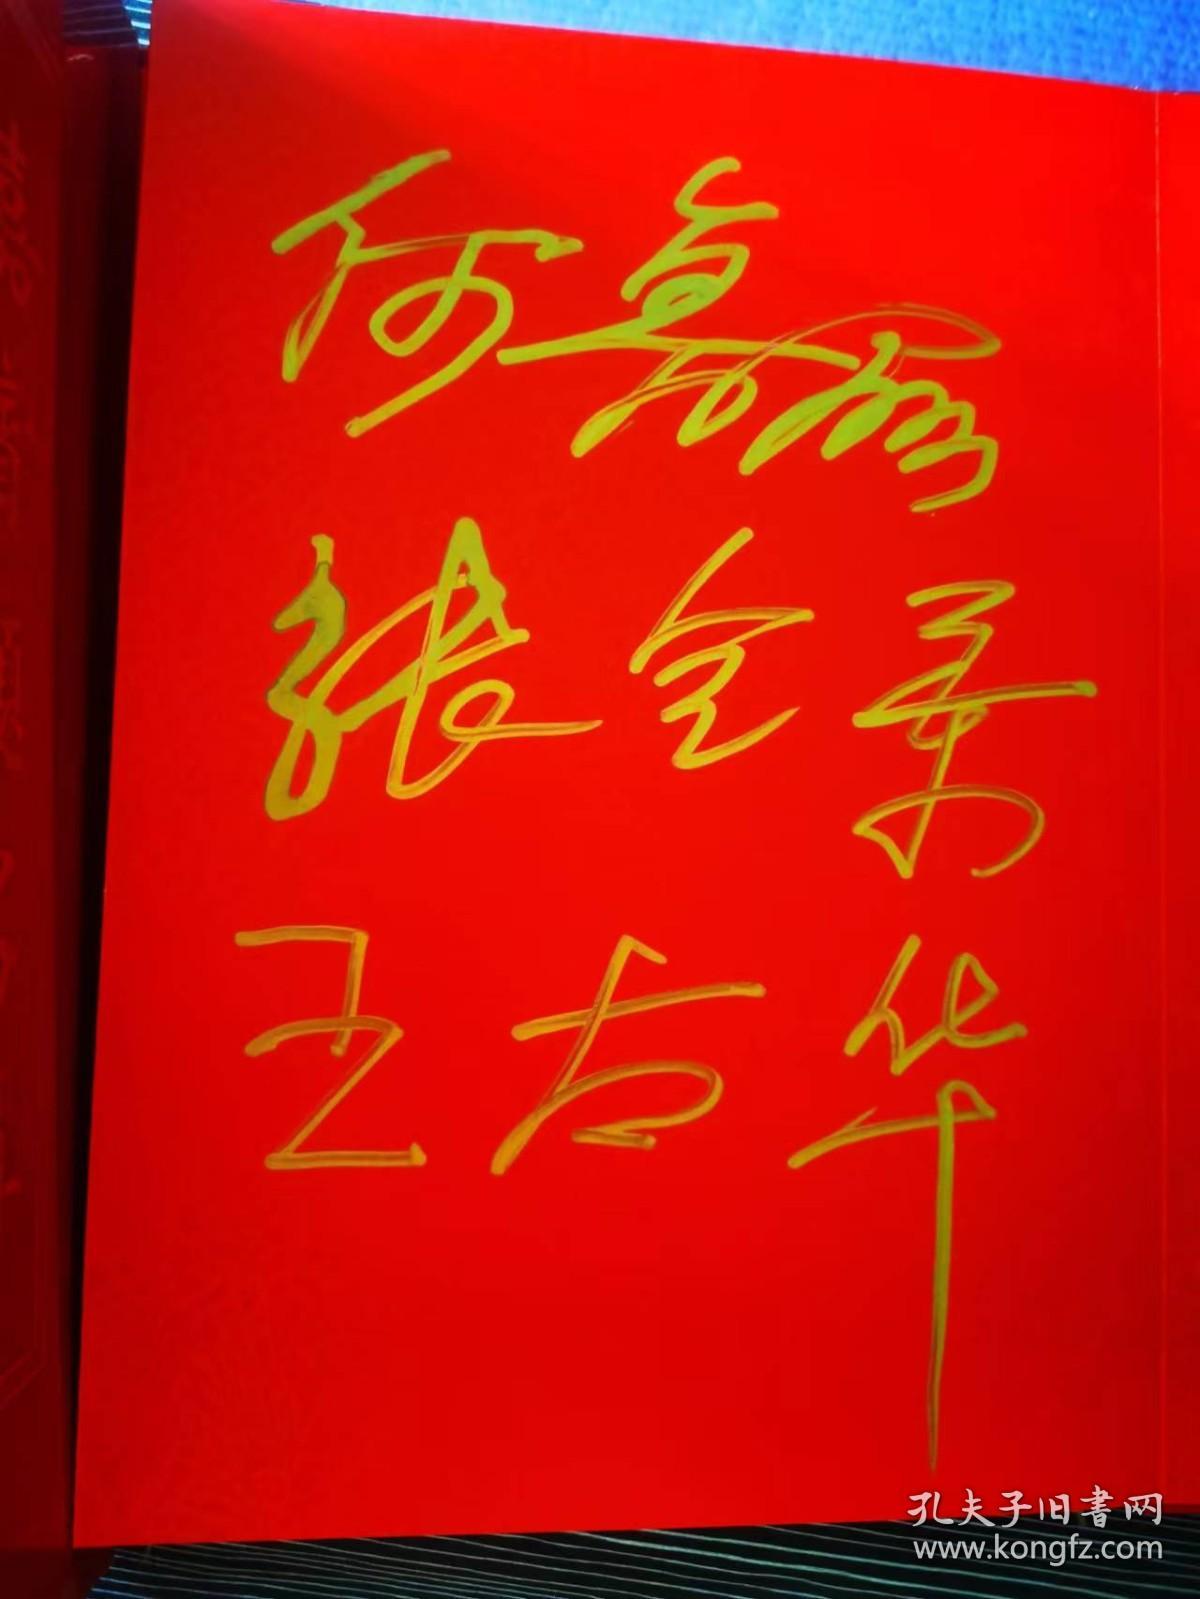 何
张全景
王古华
孔夫子旧書网
www.kongfz.com